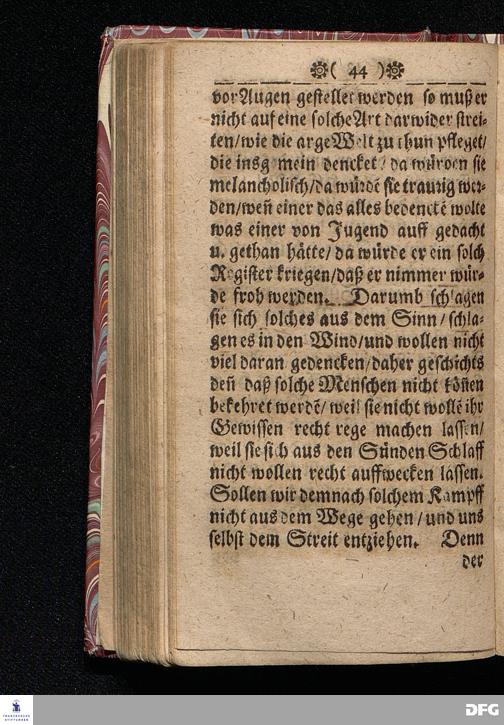 ( 44 )
vor Augen gestellet werden so muß er
nicht auf eine solche Art darwider strei-
ten/wie die arge Welt zu thun pfleget/
die insgemein dencket/ da würden sie
melancholisch/da würdē sie traurig wer-
den/weñ einer das alles bedenckē wolte
was einer von Jugend auff gedacht
u. gethan hätte/ da würde er ein solch
Register kriegen/daß er nimmer wür-
de froh werden. Darumb schlagen
sie sich solches aus dem Sinn/ schla-
gen es in den Wind/und wollen nicht
viel daran gedencken/daher geschichts
deñ daß solche Menschen nicht köñen
bekehret werdē/ weil sie nicht wollē ihr
Gewissen recht rege machen lassen/
weil sie sich aus den Sünden Schlaff
nicht wollen recht auffwecken lassen.
Sollen wir demnach solchem Kampff
nicht aus dem Wege gehen/ und uns
selbst dem Streit entziehen. Denn
der
FRANCKESCHE
STIFTUNGEN
DFG